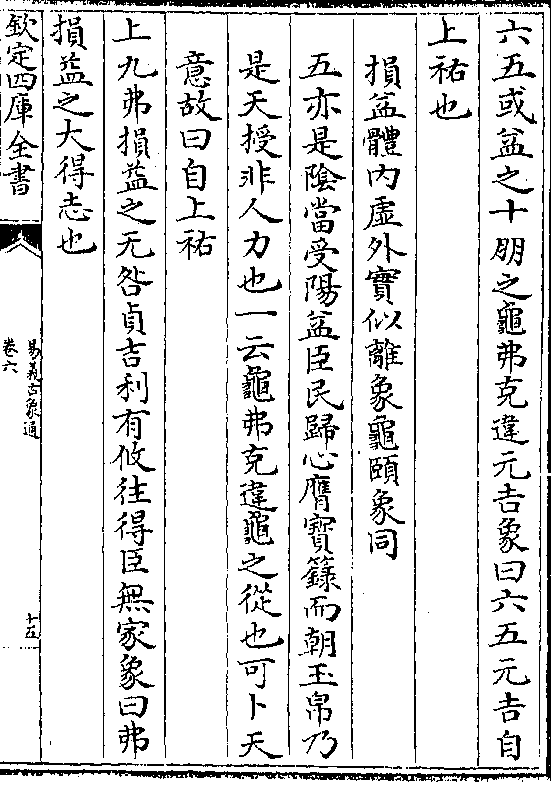 六五或益之十朋之龜弗克違元吉象曰六五元吉自
上祐也
損益體內虛外實似離象龜頤象同
五亦是陰當受陽益臣民歸心膺寶籙而朝玉帛乃
是天授非人力也一云龜弗克違龜之從也可卜天
意故曰自上祐
上九弗損益之无咎貞吉利有攸往得臣無家象曰弗
損益之大得志也
欽定四庫全書
易義古象通
卷六
十五